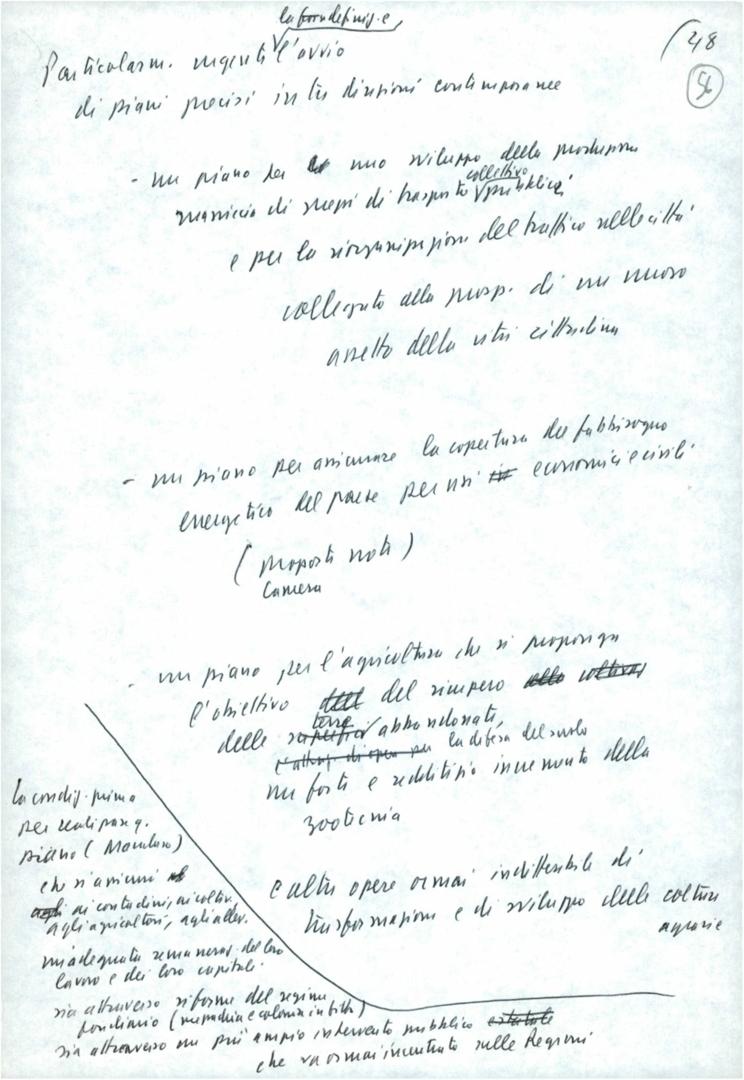 la formulaz. e
48
56
Particolarm. urgenti l'avvio
di piani precisi in tre direzioni contemporanee
- un piano per uno sviluppo della produzione
massiccia di mezzi di trasporto collettivo pubblici
e per la riorganizzazione del traffico nelle città
collegato alla prosp. di un nuovo
assetto della vita cittadina
- un piano per assicurare la copertura del fabbisogno
energetico del paese per usi economici e civili
(proposte note)
Camera
- un piano per l'agricoltura che si proponga
l'obiettivo del ricupero
delle terre abbandonate,
la difesa del suolo
un forte e redditizio incremento della
zootecnia
e altre opere ormai indifferibili di
trasformazione e di sviluppo delle colture
agrarie
la condiz. prima
per realizzare q.
piano (Mondo)
che si assicuri
ai contadini, ai coltiv.,
agli agricoltori, agli allev.
un'adeguata remuneraz. del loro
lavoro e dei loro capitali
sia attraverso riforme del regime
fondiario (mezzadria e colonia in fitto)
sia attraverso un più ampio intervento pubblico
che va ormai incentrato sulle Regioni